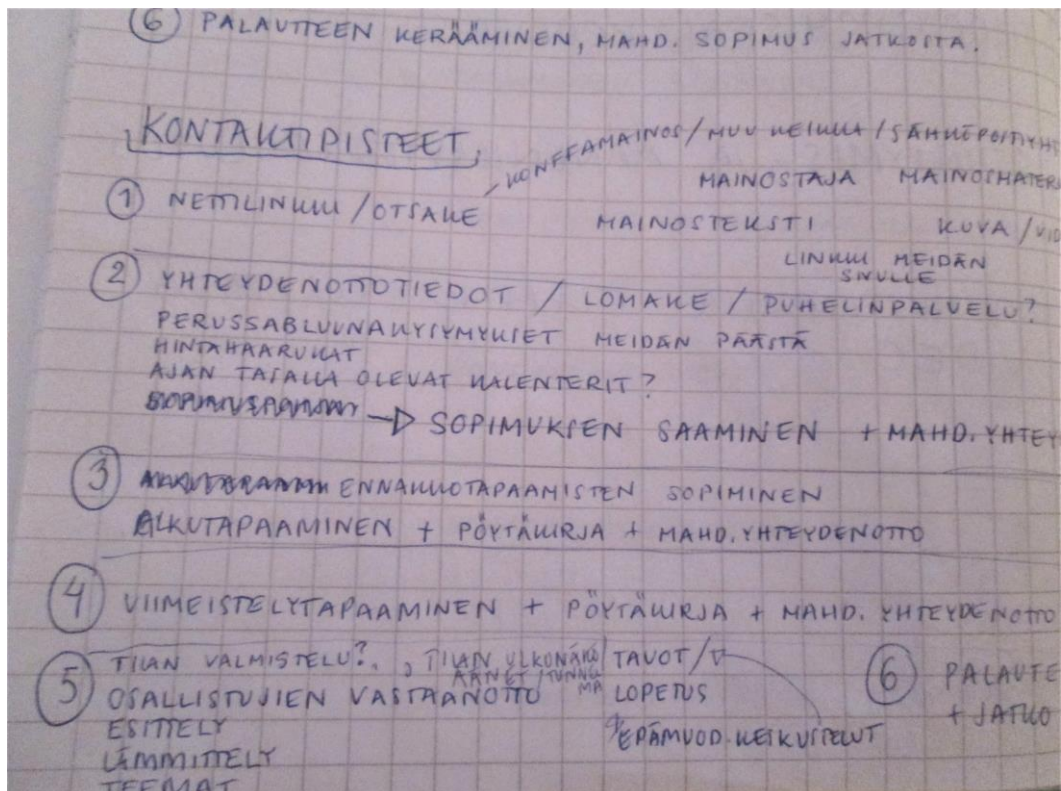 ⑥ PALAUTTEEN KERÄÄMINEN, MAHD. SOPIMUS JATKOSTA.
KONTAKTIPISTEET
KONEFAMAINOS / MUU KEIKKA / SÄHKÖPOSTIYHT
MAINOSTAJA MAINOSMATER
① NETTILINKKI / OTSAKE MAINOSTEKSTI KUVA / VID
LINKKI MEIDÄN
SIVULLE
② YHTEYDENOTTOTIEDOT / LOMAKE / PUHELINPALVELU?
PERUSSABLUUNAKYSYMYKSET MEIDÄN PÄÄSTÄ
HINTAHAARUKAT
AJAN TASALLA OLEVAT KALENTERIT?
→ SOPIMUKSEN SAAMINEN + MAHD. YHTEY
③ ENNAKKOTAPAAMISTEN SOPIMINEN
ALKUTAPAAMINEN + PÖYTÄKIRJA + MAHD. YHTEYDENOTTO
④ VIIMEISTELYTAPAAMINEN + PÖYTÄKIRJA + MAHD. YHTEYDENOTTO
⑤ TILAN VALMISTELU?, TILAN ULKONÄKÖ / TAVOT /
ÄÄNET / TUNNEL
MA
OSALLISTUJIEN VASTAANOTTO LOPETUS
ESITTELY EPÄMUOD. KESKUSTELUT
LÄMMITTELY
TEEMAT
⑥ PALAUTE
+ JATKO